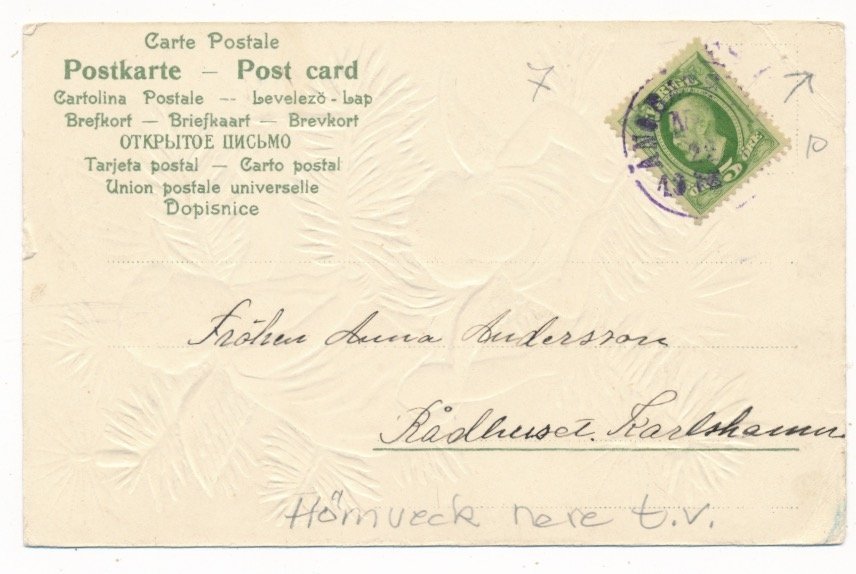 Carte Postale
Postkarte – Post card
Cartolina Postale -- Levelezõ - Lap
Brefkort – Briefkaart – Brevkort
ОТКРЫТОЕ ПИСЬМО
Tarjeta postal – Carto postal
Union postale universelle
Dopisnice
7
10
5
Fröken Anna Andersson
Rådhuset. Karlshamn
Hörnveck nere t.v.